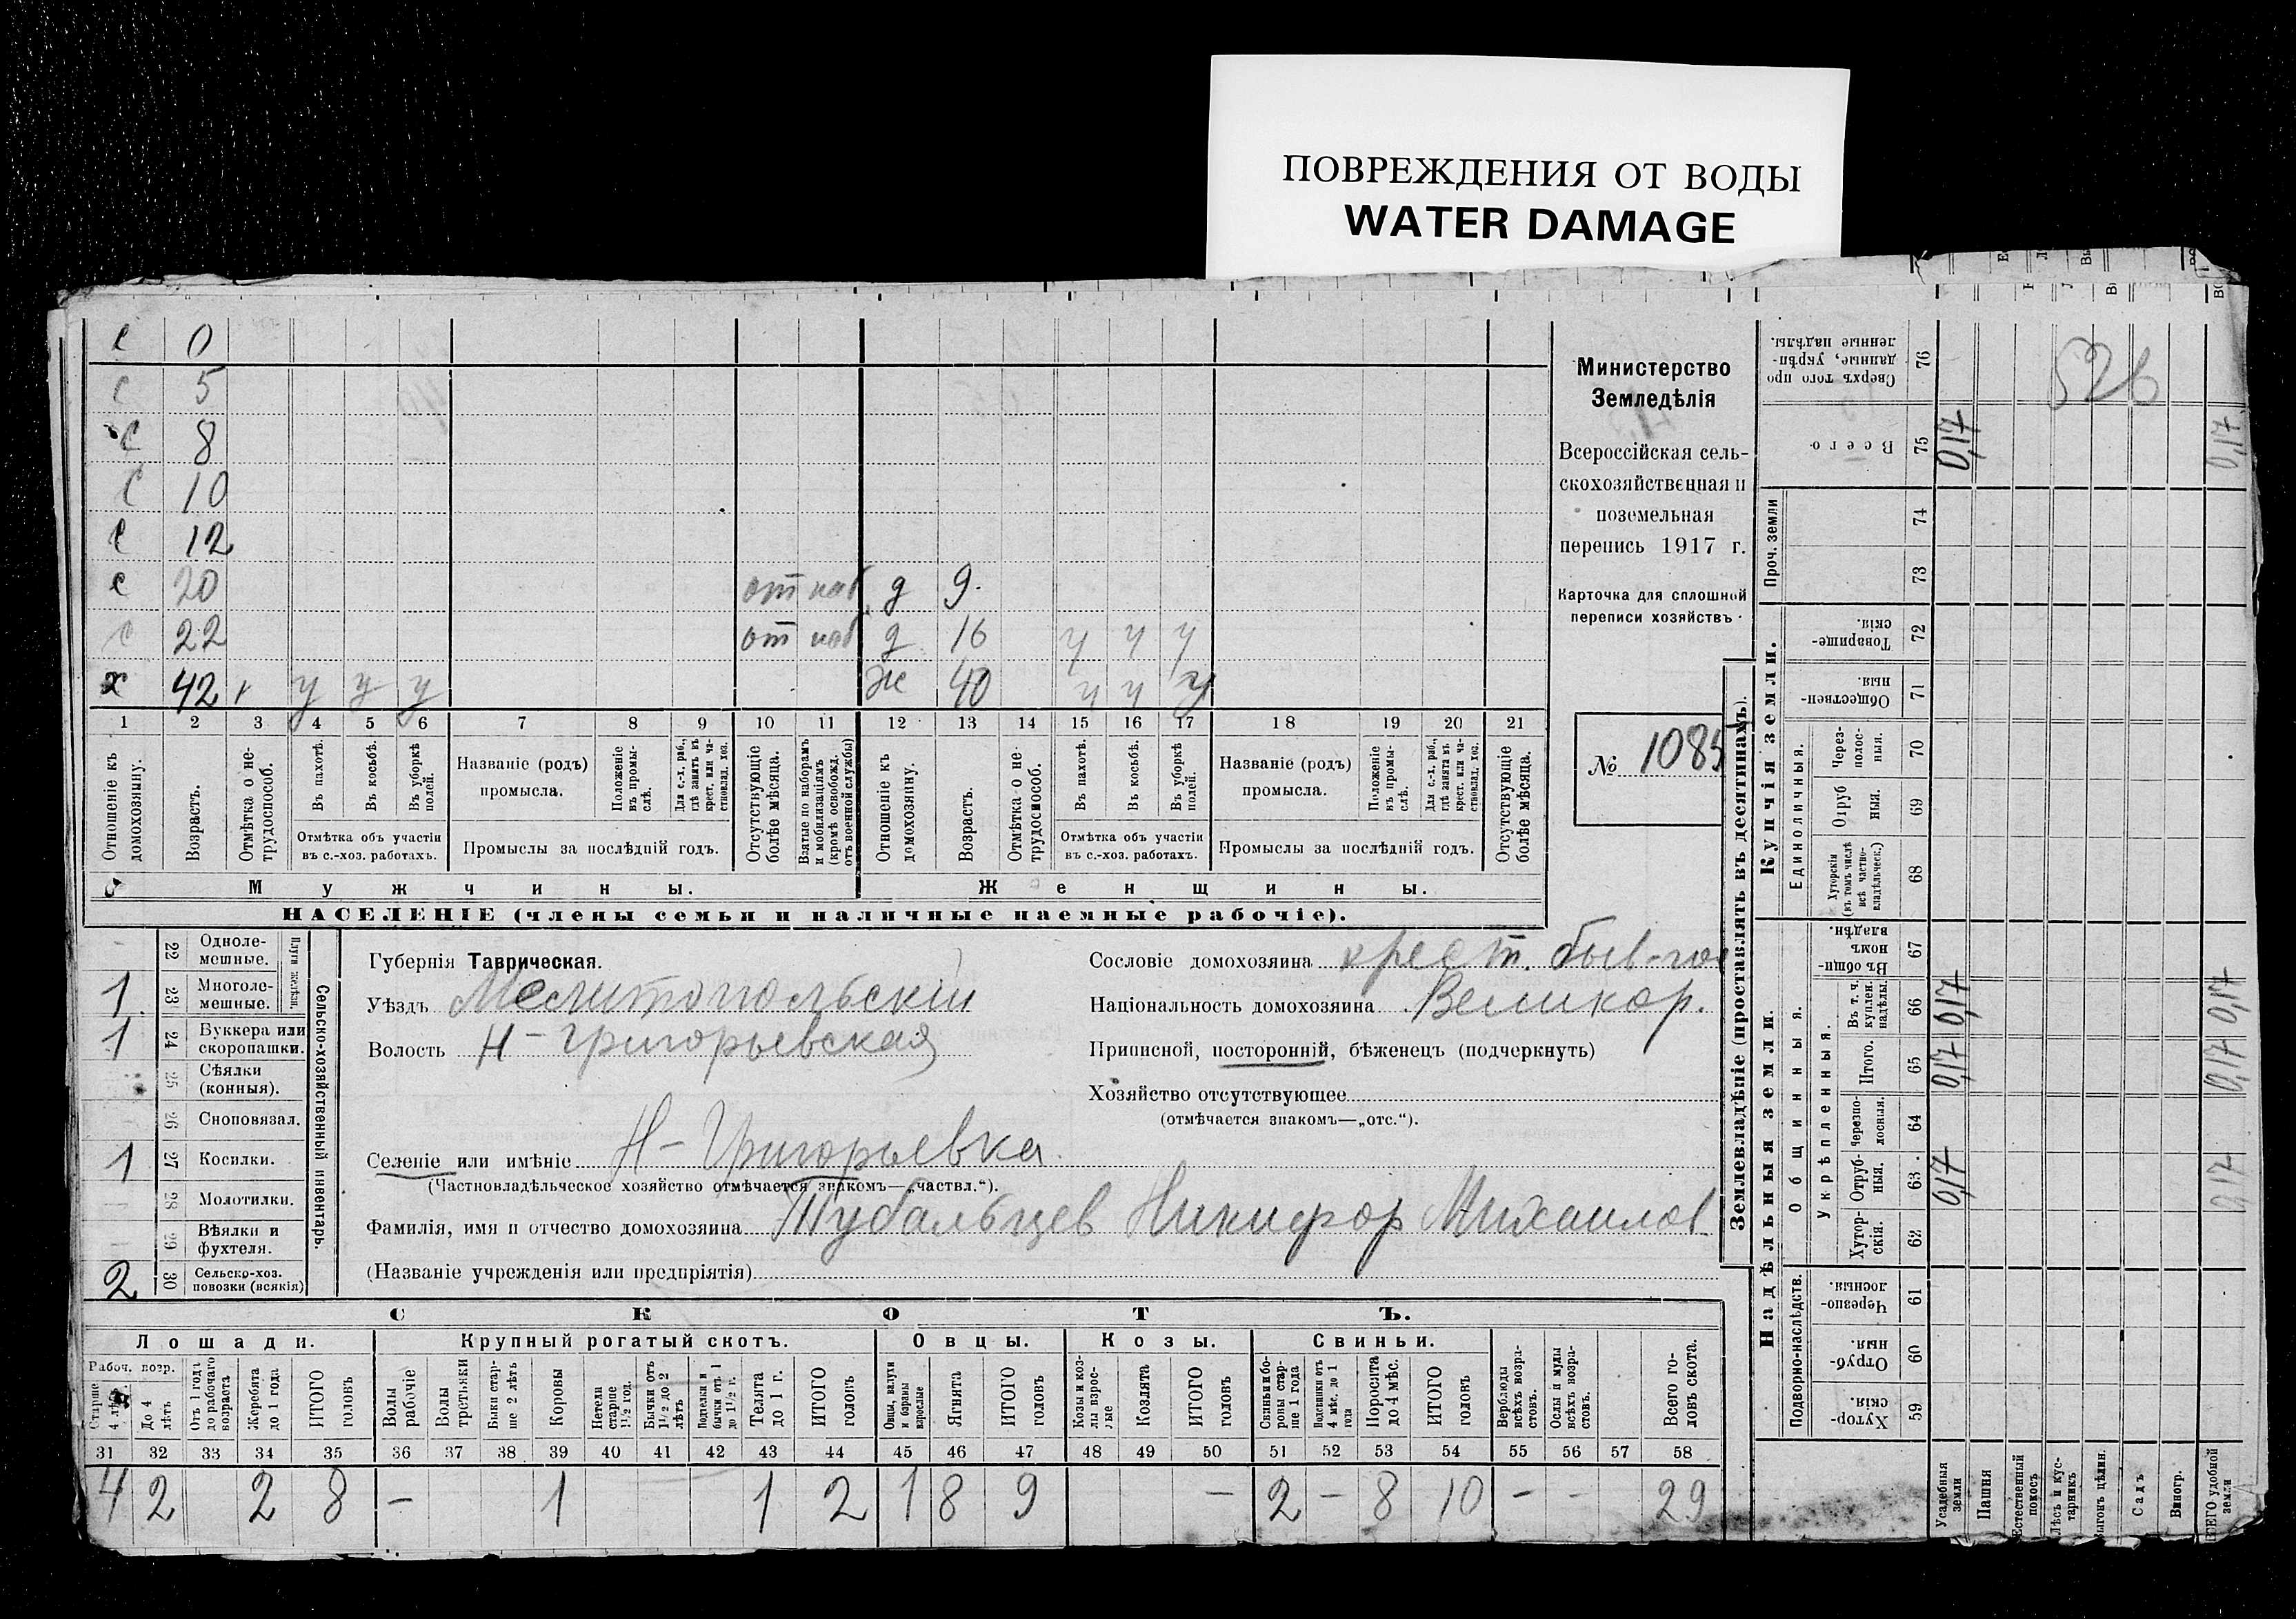 ПОВРЕЖДЕНИЯ ОТ ВОДЫ
WATER DAMAGE
с 0
с 5
с 8
с 10
с 12
с 20 от наб д 9.
с 22 от наб д 16 у у у
х 42 г у у у Ж 40 у у у
1 2 3 4 5 6 7 8 9 10 11 12 13 14 15 16 17 18 19 20 21
Отношеніе къ домохозяину.
Возрастъ.
Отмѣтка о не-трудоспособ.
Въ пахотѣ.
Въ косьбѣ.
Въ уборкѣ полей.
Отмѣтка объ участіи
въ с.-хоз. работахъ.
Названіе (родъ)
промысла.
Положеніе въ промы-слѣ.
Для с.-х. раб., гдѣ занятъ въ крест. или ча-стновлад. хоз.
Промыслы за послѣдній годъ.
Отсутствующіе болѣе мѣсяца.
Взятые по наборамъ и мобилизаціямъ (кромѣ освобожд. отъ военной службы)
Отношеніе къ домохозяину.
Возрастъ.
Отмѣтка о не-трудоспособ.
Въ пахотѣ.
Въ косьбѣ.
Въ уборкѣ полей.
Отмѣтка объ участіи
въ с.-хоз. работахъ.
Названіе (родъ)
промысла.
Положеніе въ промы-слѣ.
Для с.-х. раб., гдѣ занята въ крест. или ча-стновлад. хоз.
Промыслы за послѣдній годъ.
Отсутствующіе болѣе мѣсяца.
Мужчины. Женщины.
НАСЕЛЕНІЕ (члены семьи и наличные наемные рабочіе).
Министерство
Земледѣлія
Всероссійская сель-
скохозяйственная и
поземельная
перепись 1917 г.
Карточка для сплошной
переписи хозяйствъ.
№ 1085
Сельско-хозяйственный инвентарь.
Плуги желѣзн.
22 Одноле-мешные.
1 23 Многоле-мешные.
1 24 Буккера или скоропашки.
25 Сѣялки (конныя).
26 Сноповязал.
1 27 Косилки.
28 Молотилки.
29 Вѣялки и фухтеля.
2 30 Сельско-хоз. повозки (всякія)
Губернія Таврическая.
Уѣздъ Мелитопольскій
Волость Н-Григорьевская
Сословіе домохозяина крест. быв-гос
Національность домохозяина Великор.
Приписной, посторонній, бѣженецъ (подчеркнуть)
Хозяйство отсутствующее
(отмѣчается знакомъ—„отс.“).
Селеніе или имѣніе Н-Григорьевка
(Частновладѣльческое хозяйство отмѣчается знакомъ—„частвл.“).
Фамилія, имя и отчество домохозяина Тубальцев Никифор Михаилов
(Названіе учрежденія или предпріятія)
СКОТЪ.
Лошади. Крупный рогатый скотъ. Овцы. Козы. Свиньи.
Рабоч. возр.
Старше 4 лѣтъ
До 4 лѣтъ
Отъ 1 года до рабочаго возраста
Жеребята до 1 года
ИТОГО головъ
Волы рабочіе
Волы третьяки
Быки стар-ше 2 лѣтъ
Коровы
Нетели старше 1½ год.
Бычки отъ 1½ до 2 лѣтъ
Подтелки и бычки отъ 1 до 1½ г.
Телята до 1 г.
ИТОГО головъ
Овцы, валухи и бараны взрослые
Ягнята
ИТОГО головъ
Козы и коз-лы взрос-лые
Козлята
ИТОГО головъ
Свиньи и бо-ровы стар-ше 1 года
Подсвинки отъ 4 мѣс. до 1 года
Поросята до 4 мѣс.
ИТОГО головъ
Верблюды всѣхъ возра-стовъ.
Ослы и мулы всѣхъ возра-стовъ.
Всего го-ловъ скота.
31 32 33 34 35 36 37 38 39 40 41 42 43 44 45 46 47 48 49 50 51 52 53 54 55 56 57 58
4 2 2 8 – 1 1 2 1 8 9 – 2 – 8 10 – – 29
Землевладѣніе (проставлять въ десятинахъ).
Купчія земли.
Надѣльныя земли.
Сверхъ того про-даные, укрѣп-ленные надѣлы. 76
526
Всего 75 0,17 0,17
Проч. земли 74
73
Товарище-скія. 72
Обществен-ныя. 71
Единоличныя.
Через-полос-ныя. 70
Отруб-ныя. 69
Хуторскія (въ томъ числѣ всѣ частно-владѣльческ.) 68
Общинныя.
Въ общи-номъ владѣн. 67
Укрѣпленныя.
Въ т. ч. куплен. надѣлы. 66 0,17 0,17
Итого. 65 0,17 0,17
Черезпо-лосныя. 64
Отруб-ныя. 63 0,17 0,17
Хутор-скія. 62
Подворно-наслѣдств.
Черезпо-лосныя 61
Отруб-ныя. 60
Хутор-скія 59
Усадебныя земли
Пашня
Естественный покосъ
Лѣсъ и кус-тарникъ
Выгонъ цѣлин.
Садъ
Виногр.
ВСЕГО удобной земли